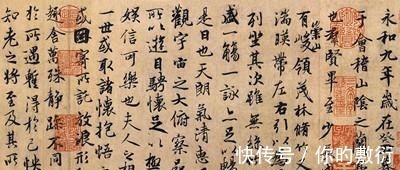 永和九年歲在
于會稽山陰之蘭
也群賢畢至少長
有崇山峻領茂林脩竹
湍暎帶左右引以
列坐其次雖無
盛一觴一詠亦足以
是日也天朗氣清惠
觀宇宙之大俯察品
所以遊目騁懷足以極
娛信可樂也夫人之
一世或取諸懷抱悟
或因寄所託放浪形
趣舍萬殊靜躁不同
於所遇暫得於己怏
知老之將至及其所
快传号/你的敷衍